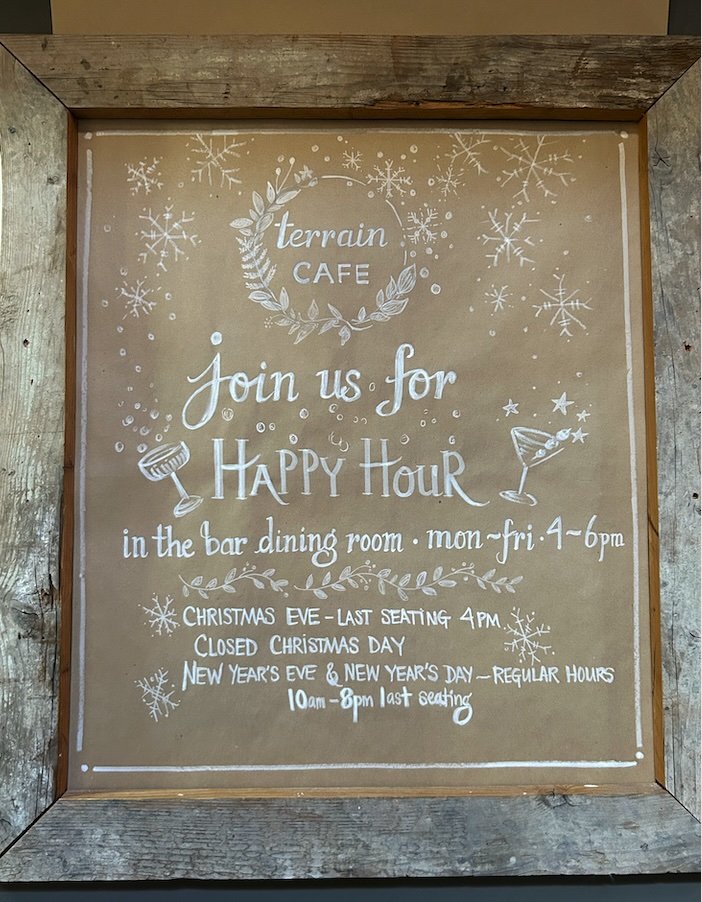 terrain
CAFE
Join us for
HAPPY HOUR
in the bar dining room · mon~fri · 4~6pm
CHRISTMAS EVE - LAST SEATING 4PM
CLOSED CHRISTMAS DAY
NEW YEAR'S EVE & NEW YEAR'S DAY ~ REGULAR HOURS
10am - 8pm last seating